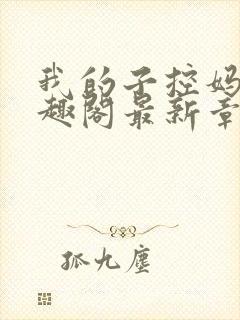 我的子控妈
趣阁最新章
孤九尘